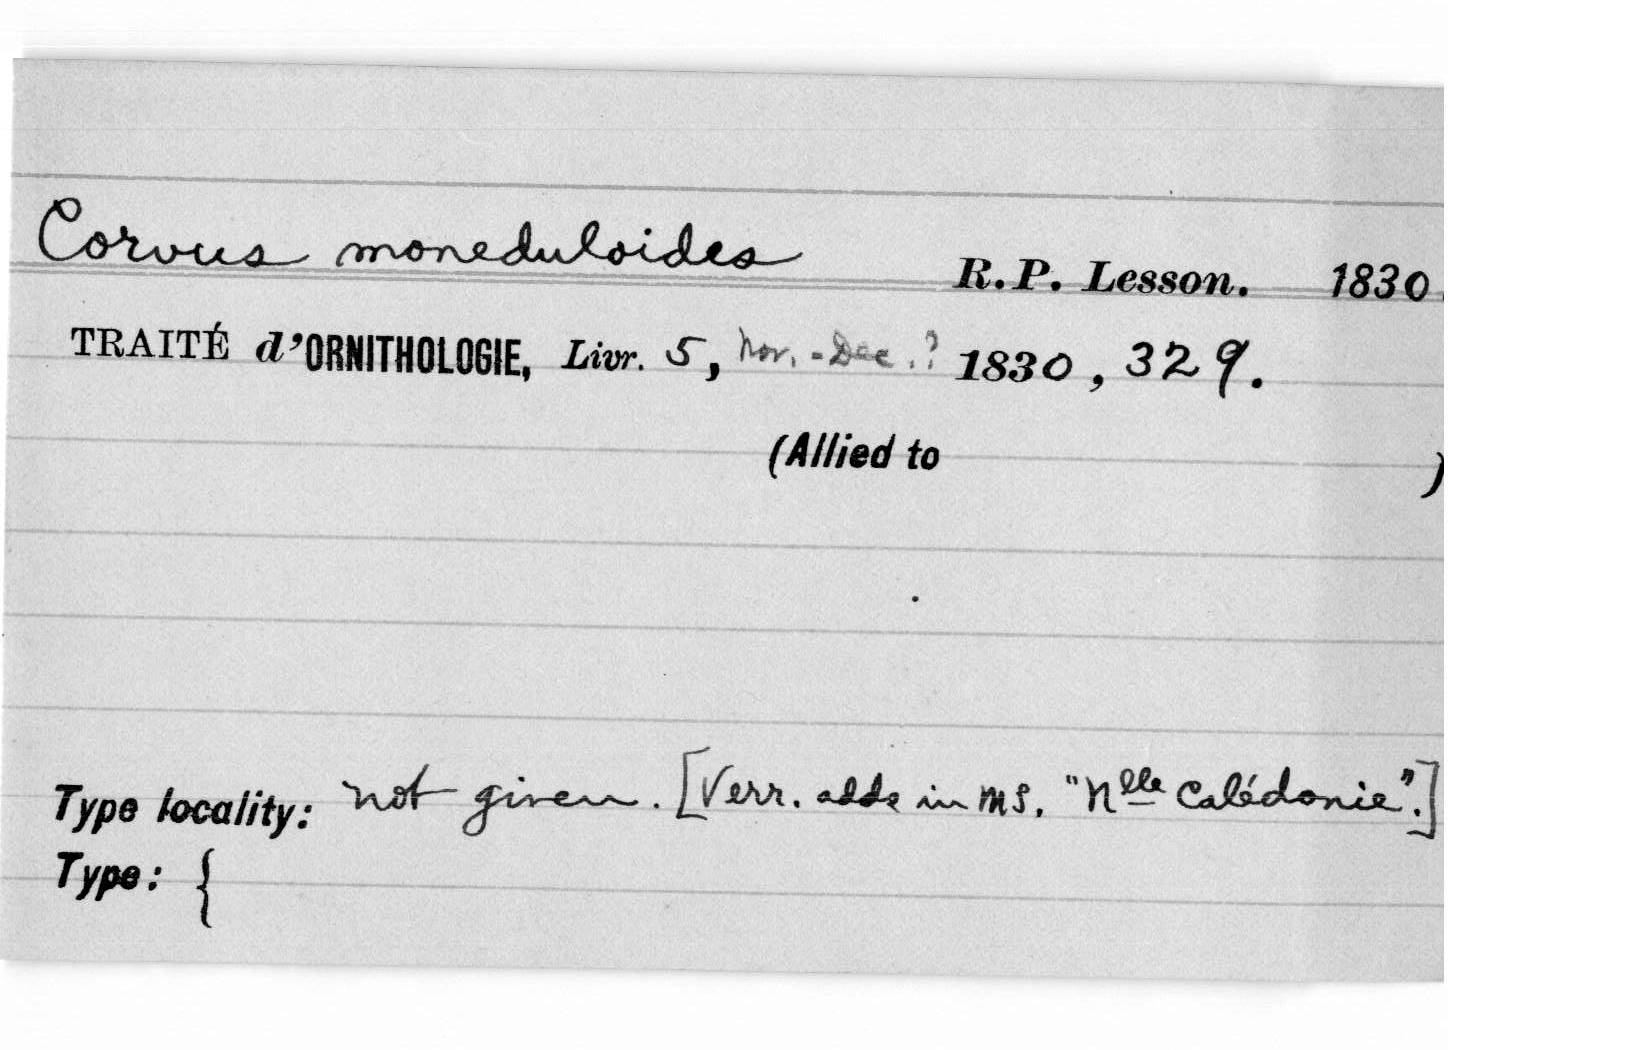 Corvus moneduloides R.P. Lesson. 1830.
TRAITÉ d'ORNITHOLOGIE, Livr. 5, Nov.-Dec.? 1830, 329.
(Allied to )
Type locality: not given. [Verr. adds in MS. "Nlle Calédonie".]
Type: {